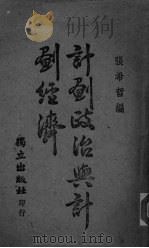 張希哲編
計劃政治與計
劃經濟
獨立出版社
印行